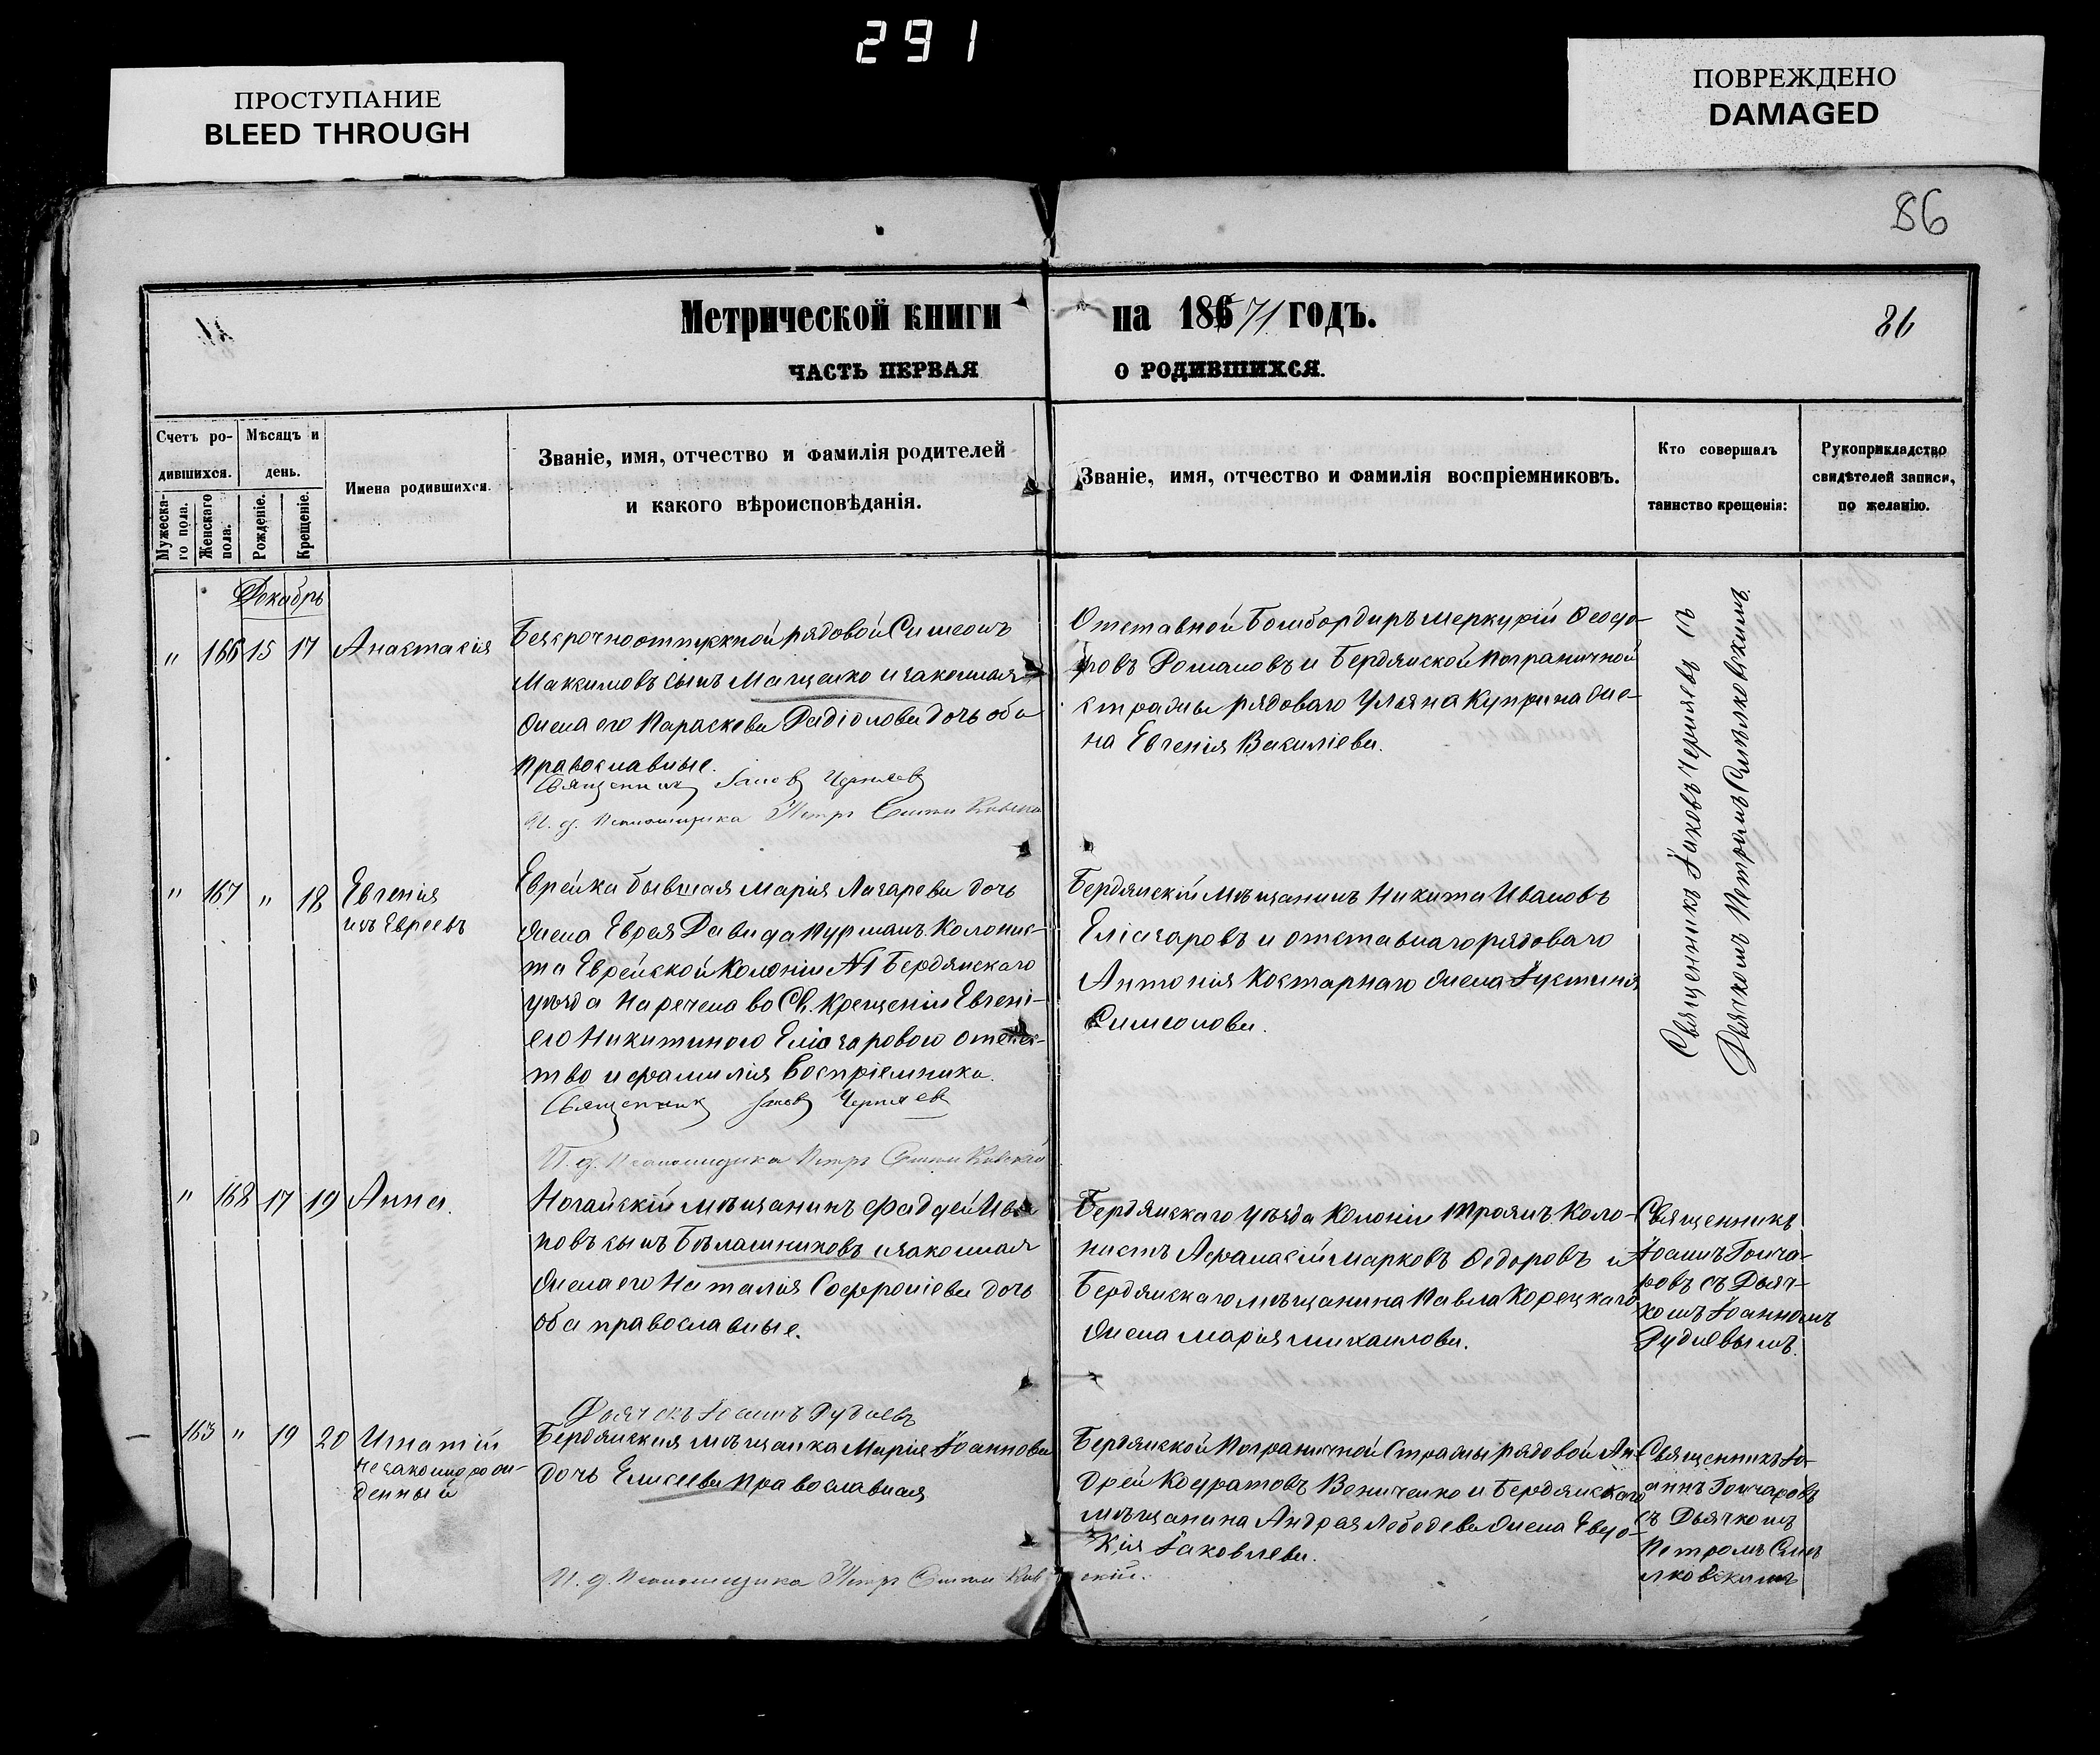 291
ПРОСТУПАНИЕ
BLEED THROUGH
ПОВРЕЖДЕНО
DAMAGED
86
Метрической книги на 18671 годъ.
86
ЧАСТЬ ПЕРВАЯ О РОДИВШИХСЯ.
Счетъ ро-
дившихся.
Мужеска-
го пола.
Женскаго
пола.
Мѣсяцъ и
день.
Рожденіе.
Крещеніе.
Имена родившихся.
Званіе, имя, отчество и фамилія родителей
и какого вѣроисповѣданія.
Званіе, имя, отчество и фамилія воспріемниковъ.
Кто совершалъ
таинство крещенія:
Рукоприкладство
свидѣтелей записи,
по желанію.
Декабрь
" 166 15 17 Анастасія
Безсрочноотпускной рядовой Симеонъ
Максимовъ сынъ Мащенко и законная
жена его Параскева Радіонова дочь оба
православные.
Священникъ Іаковъ Черняевъ
И. д. Псаломщика Петръ
Отставной Бомбордиръ Меркурій Ѳеодо-
ровъ Романовъ и Бердянской Пограничной
стражи рядоваго Ульяна Куприна же-
на Евгенія Василіева.
Священникъ Іаковъ Черняевъ съ
Дьячкомъ Петромъ
" 167 " 18 Евгенія
изъ Евреевъ
Еврейка бывшая Марія Лазарева дочь
жена Еврея Давида Курманъ Колонис-
та Еврейской Колоніи №1 Бердянскаго
уѣзда Наречена во Св. Крещеніи Евгені-
ею Никитиною Еліазаровою отечес-
тво и фамилія Воспріемника.
Священникъ Іаковъ Черняевъ
И. д. Псаломщика Петръ
Бердянскій Мѣщанинъ Никита Ивановъ
Еліазаровъ и отставнаго рядоваго
Антонія Костарнаго жена Іустинія
Симеонова.
" 168 17 19 Анна.
Ногайскій мѣщанинъ Фаддей Ива-
новъ сынъ Бѣлашниковъ и законная
жена его Наталія Софроніева дочь
оба православные.
Дьячекъ Іоаннъ Рудневъ
Бердянскаго уѣзда Колоніи Троянъ Коло-
нистъ Афанасій Марковъ Ѳедоровъ и
Бердянскаго мѣщанина Павла Корецкаго
жена Марія Михаилова.
Священникъ
Іоаннъ Гонча-
ровъ съ Дьяч-
комъ Іоанномъ
Рудневымъ.
163 " 19 20 Игнатій
незаконнорож-
денный
Бердянская мѣщанка Марія Іоаннова
дочь Елисеева православная
И. д. Псаломщика Петръ
Бердянской Пограничной Стражи рядовой Ан-
дрей Кодратовъ Величенко и Бердянскаго
мѣщанина Андрея Лебедева жена Евдо-
кія Іаковлева.
Священникъ Іо-
аннъ Гончаровъ
съ Дьячкомъ
Петромъ